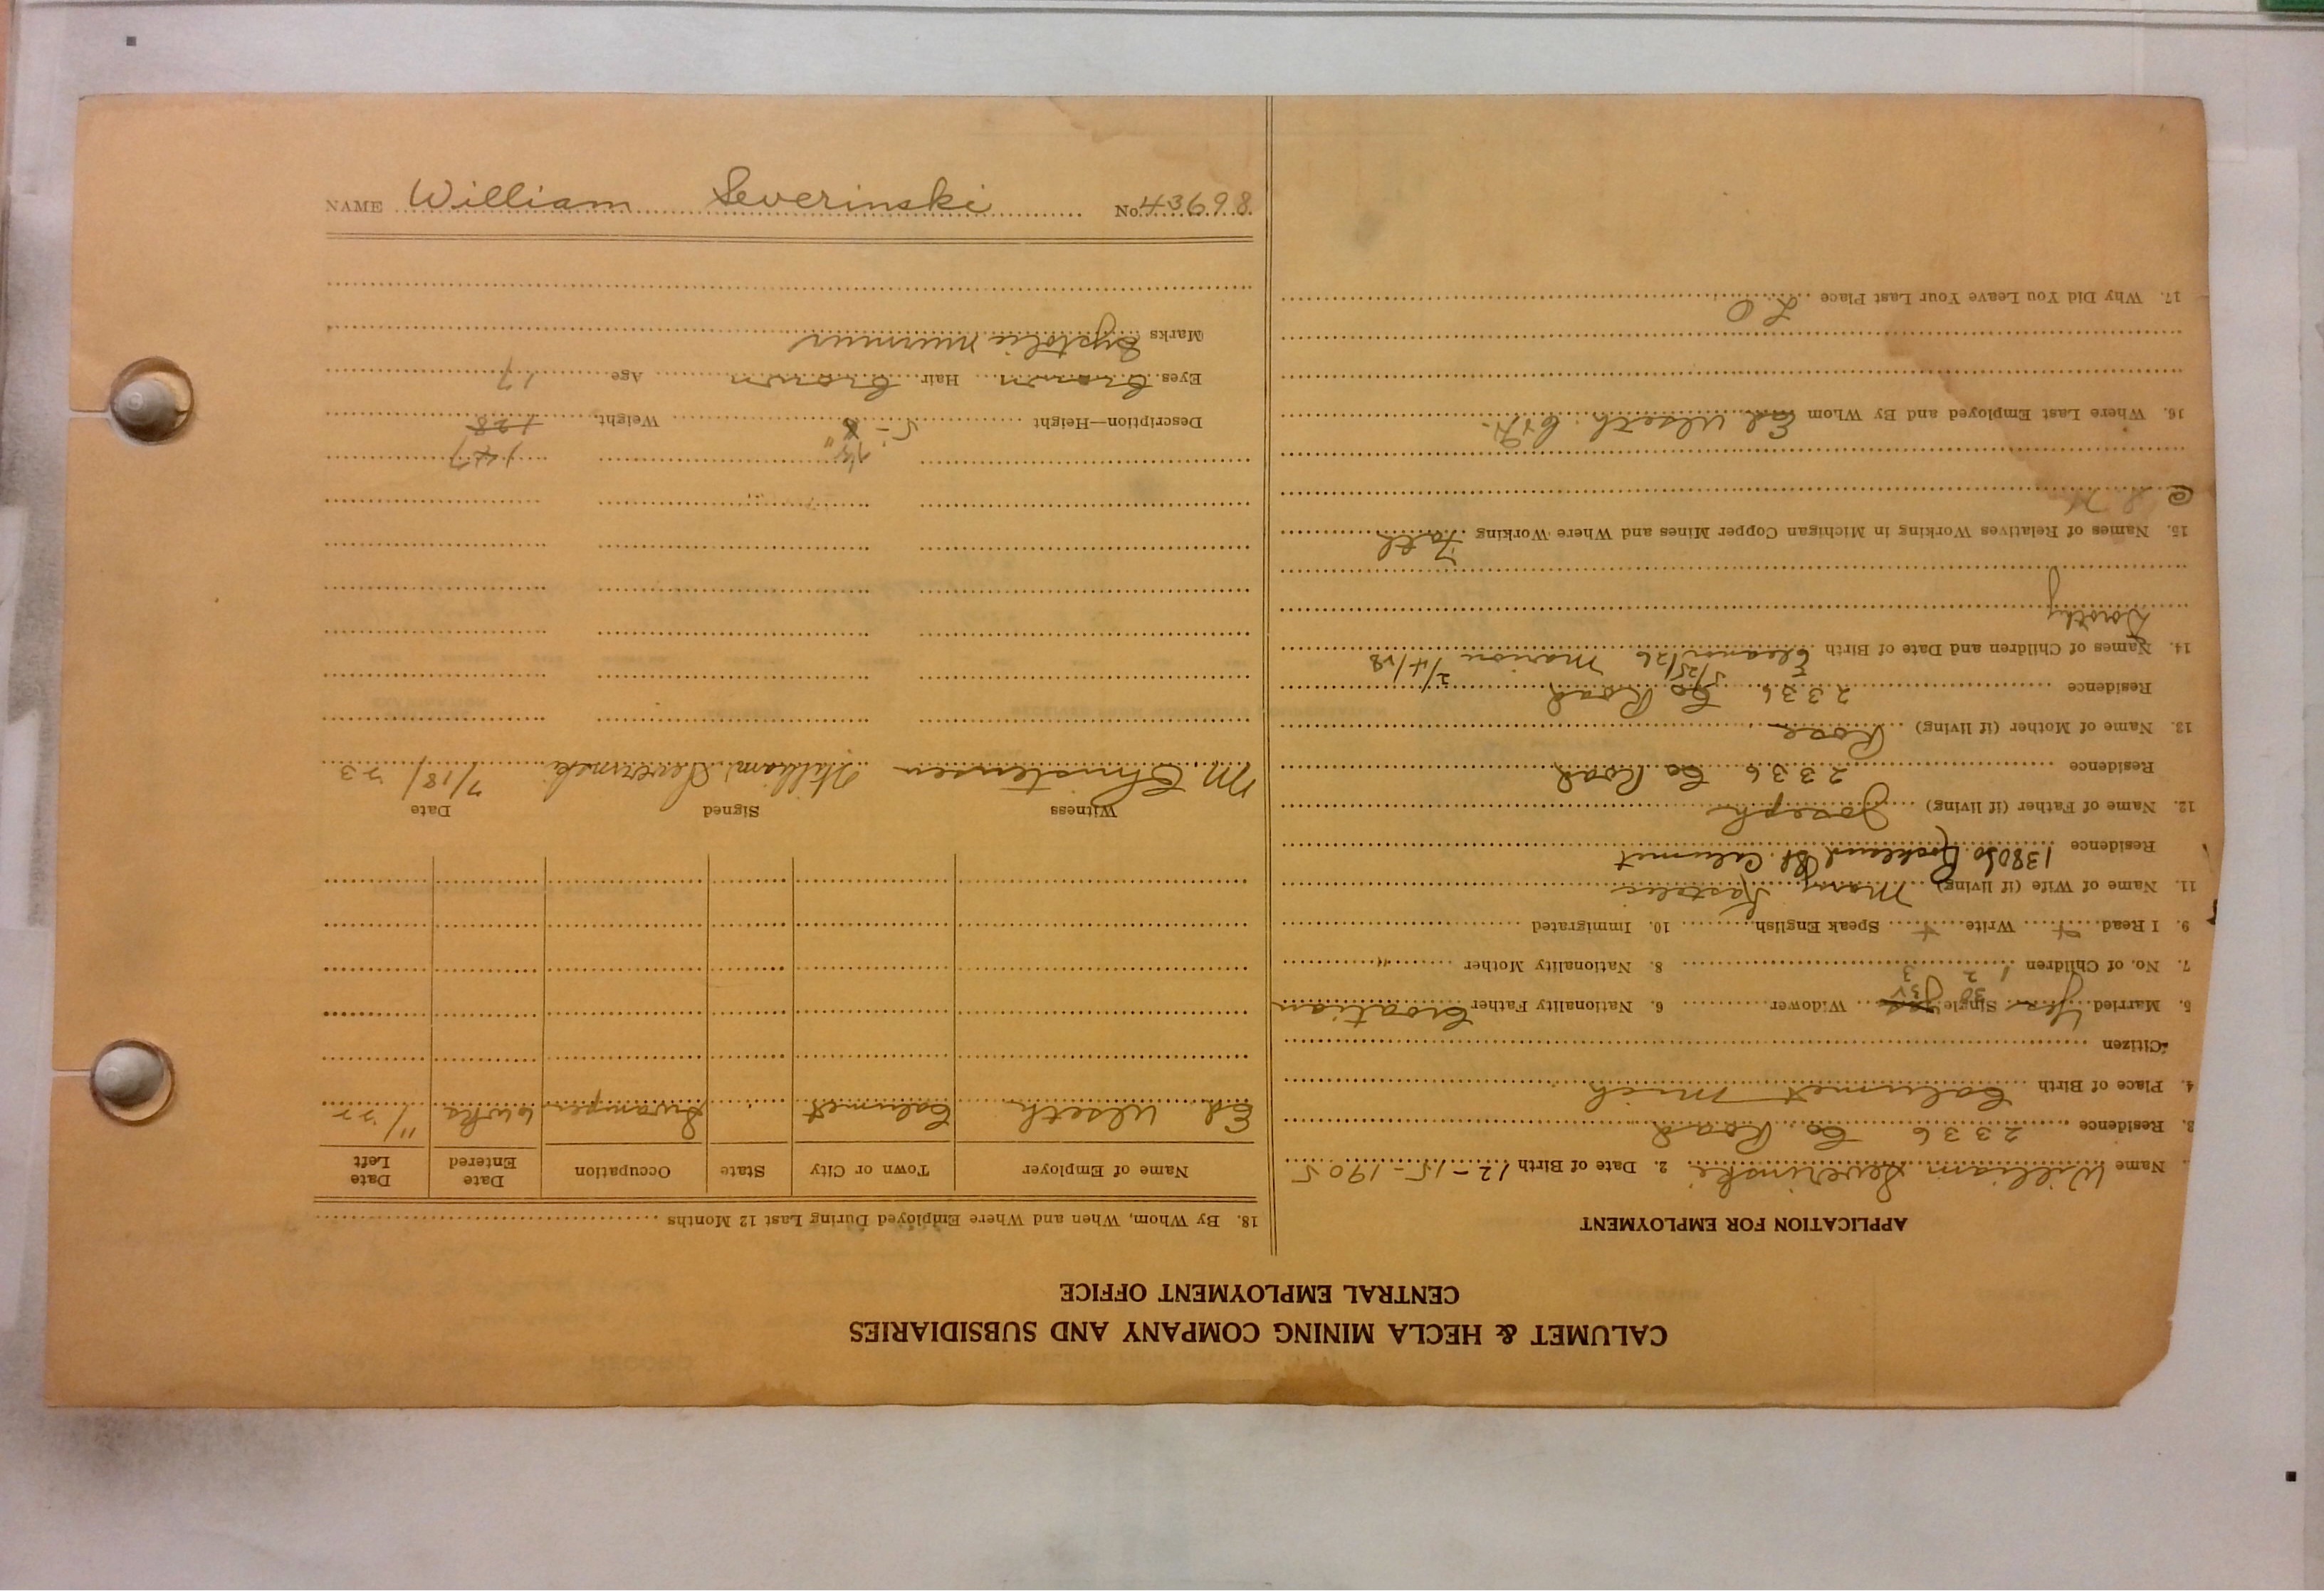 CALUMET & HECLA MINING COMPANY AND SUBSIDIARIES
CENTRAL EMPLOYMENT OFFICE
APPLICATION FOR EMPLOYMENT
Name William Severinski 2. Date of Birth 12-15-1905
3. Residence 2336 Co. Road
4. Place of Birth Calumet Mich
Citizen
5. Married Yes Single Widower 6. Nationality Father Croatian
7. No. of Children 1 2 3 8. Nationality Mother "
9. I Read + Write + Speak English 10. Immigrated
11. Name of Wife (if living) Mary Kastelic
Residence 1380 So Rockland St. Calumet
12. Name of Father (if living) Joseph
Residence 2336 Co Road
13. Name of Mother (if living) Rose
Residence 2336 Co Road
14. Names of Children and Date of Birth Eleanor 5/25/26 Marion 2/4/28
Dorothy
15. Names of Relatives Working in Michigan Copper Mines and Where Working Fath
16. Where Last Employed and By Whom Ed Ulseth
17. Why Did You Leave Your Last Place LO
18. By Whom, When and Where Employed During Last 12 Months
Name of Employer Town or City State Occupation Date Entered Date Left
Ed Ulseth Calumet Swamper 6 wks 11/22
Witness Signed Date
M. Christensen William Severinski 7/18/23
147
Description—Height 5- Weight 128
Eyes brown Hair brown Age 17
Marks Systolic murmur
NAME William Severinski No. 43698